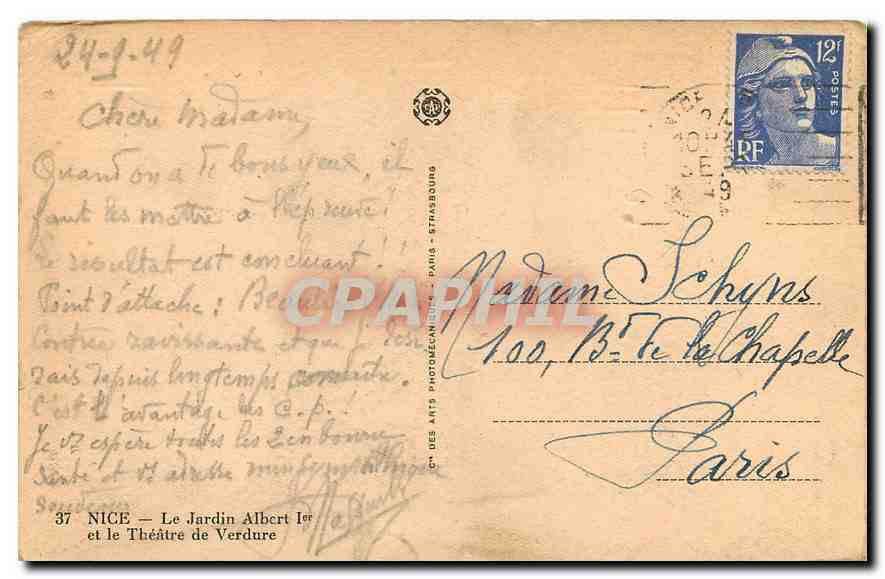 24-9-49
Chère Madame,
Quand on a de bons yeux, il
faut les mettre à l'épreuve!
Le résultat est concluant!!
Point d'attache:
Contrée ravissante et que je
rais depuis longtemps connaître.
C'est l'avantage des C.P.!
Je vs espère toutes les 2 en bonne
santé et vs adresse mon sympathique
souvenir
37 NICE — Le Jardin Albert Ier
et le Théâtre de Verdure
Cie DES ARTS PHOTOMÉCANIQUES - PARIS - STRASBOURG
CAP
CPAPHIL
12F
POSTES
RF
Madame Schyns
100, Bd de la Chapelle
Paris